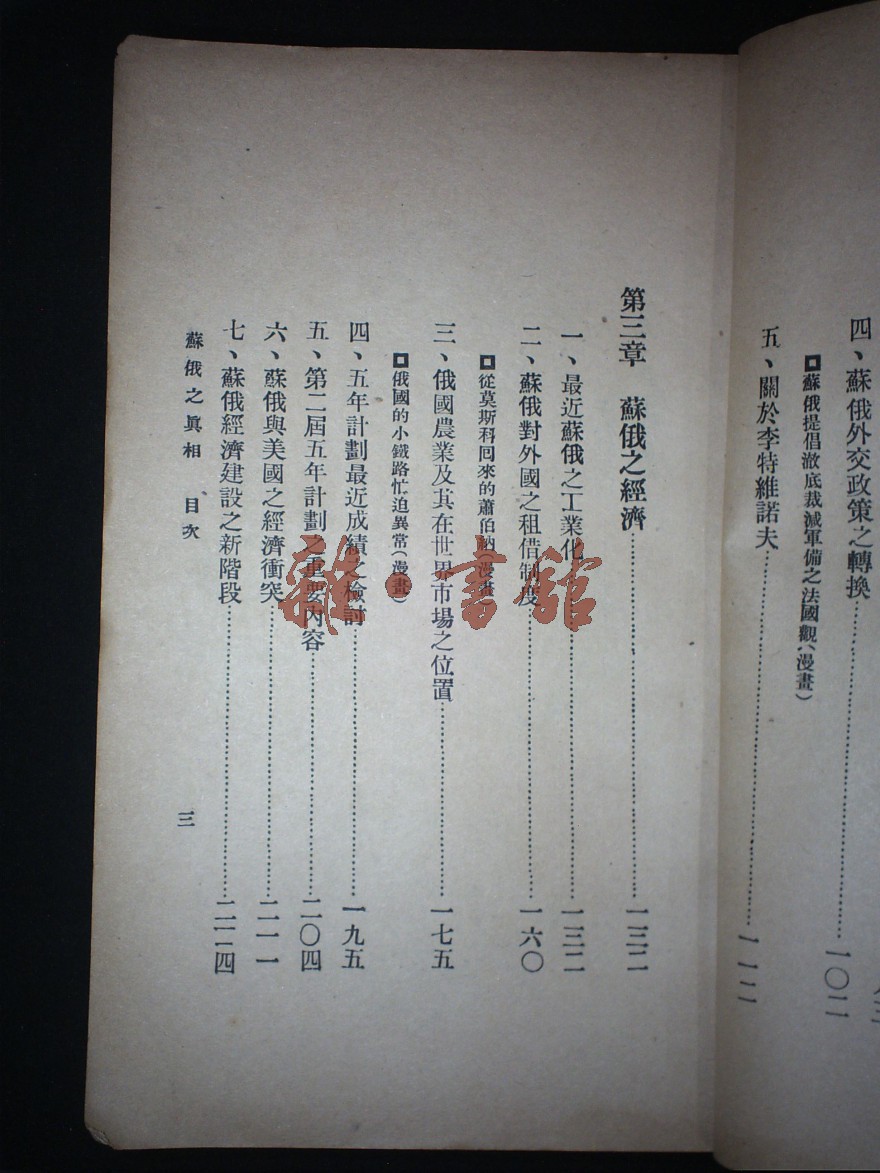 四、蘇俄外交政策之轉換……一〇二
◘蘇俄提倡澈底裁減軍備之法國觀(漫畫)
五、關於李特維諾夫……一一二
第三章 蘇俄之經濟……一三二
一、最近蘇俄之工業化……一三二
二、蘇俄對外國之租借制度……一六〇
◘從莫斯科回來的蕭伯訥(漫畫)
三、俄國農業及其在世界市場之位置……一七五
◘俄國的小鐵路忙迫異常(漫畫)
四、五年計劃最近成績之檢討……一九五
五、第二屆五年計劃之重要內容……二〇四
六、蘇俄與美國之經濟衝突……二一一
七、蘇俄經濟建設之新階段……二一四
蘇俄之眞相 目次 三
雜·書館